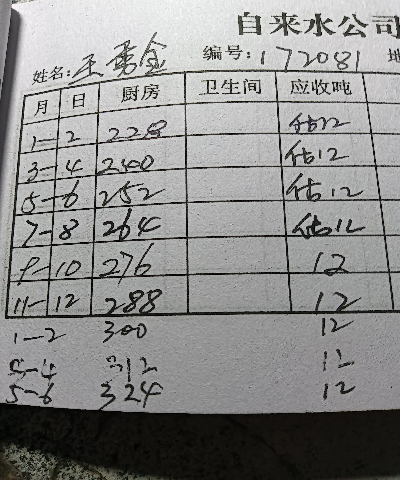 自来水公司
姓名:王勇金 编号:172081
月 日 厨房 卫生间 应收吨
1-2 228 估12
3-4 240 估12
5-6 252 估12
7-8 264 估12
9-10 276 12
11-12 288 12
1-2 300 12
3-4 312 12
5-6 324 12